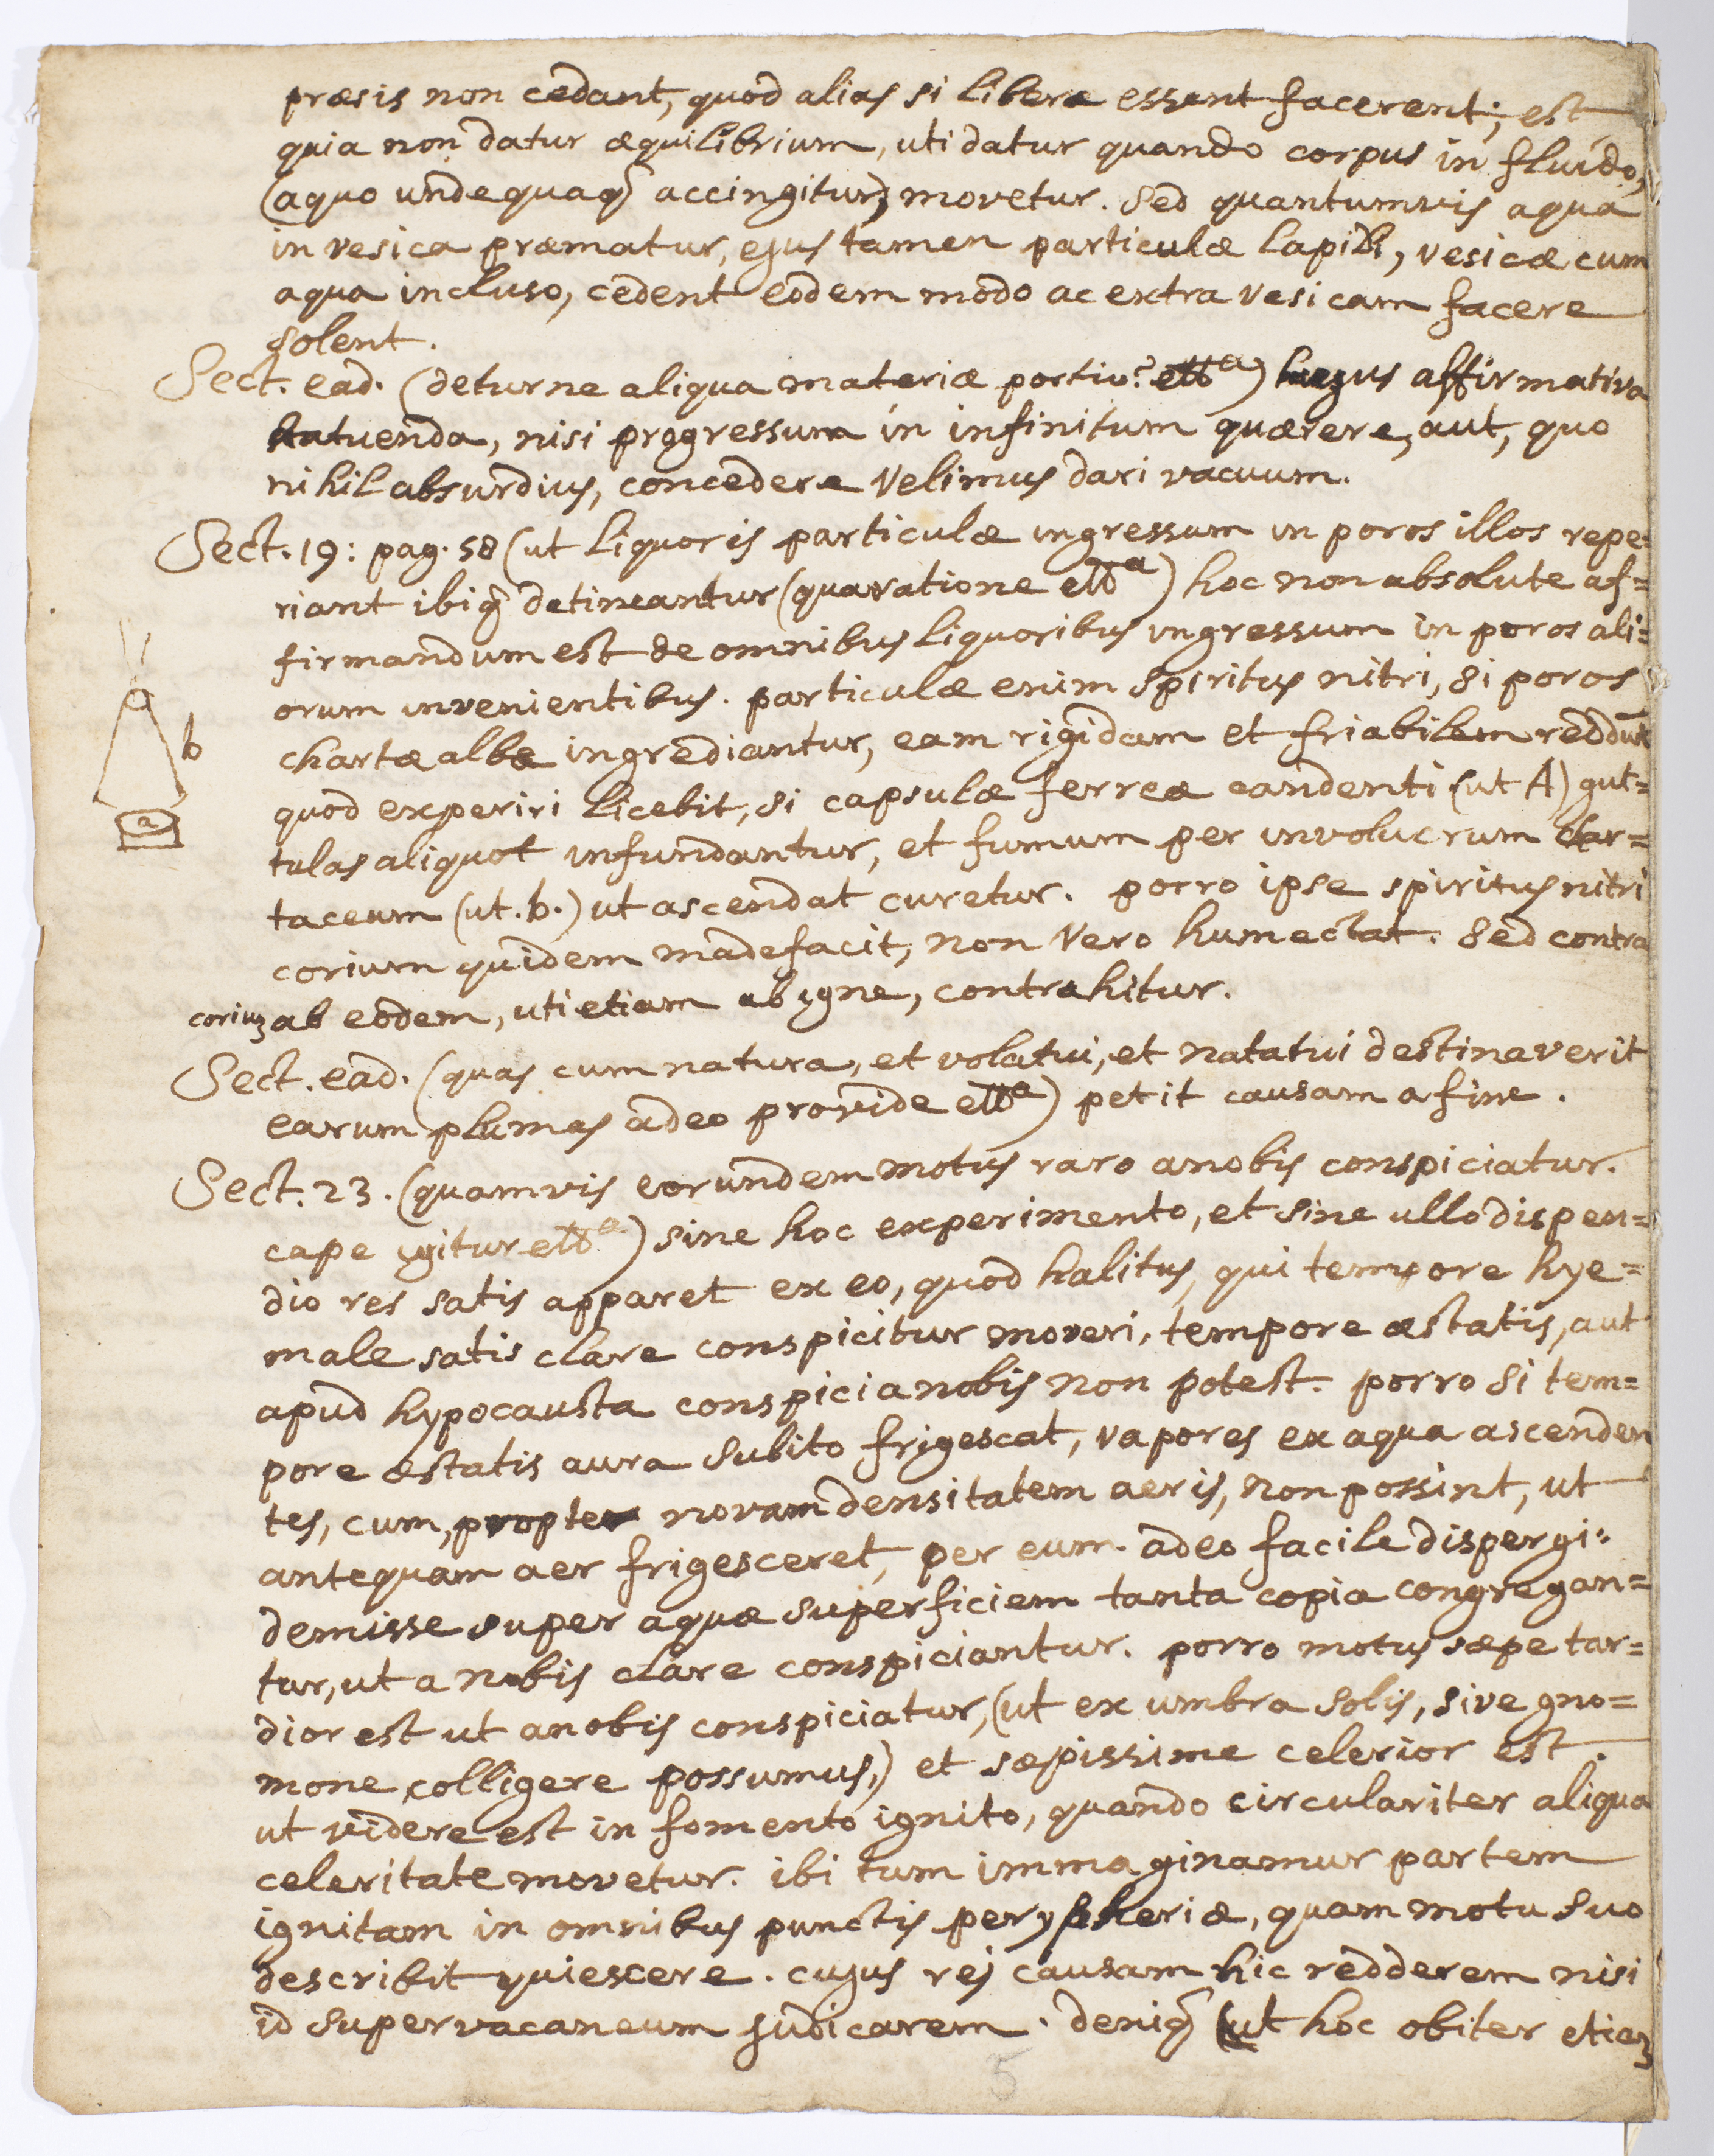 præsis non cedant, quod alias si liberæ essent facerent; est
quia non datur æquilibrium, uti datur quando corpus in fluido,
(a quo undequaq́ accingitur) movetur. Sed quantumvis aqua
in vesica præmatur, ejus tamen particulæ lapidi, vesicæ cum
aqua incluso, cedent eodem modo ac extra vesicam facere
solent.
Sect. ead. (detur ne aliqua materiæ portio? ett^a) hujus affirmativa
statuenda, nisi progressum in infinitum quærere, aut, quo
nihil absurdius, concedere velimus dari vacuum.
Sect. 19: pag. 58 (ut liquoris particulæ ingressum in poros illos repe=
riant ibiq́ detineantur (qua ratione ett^a) hoc non absolute af=
firmandum est de omnibus liquoribus ingressum in poros ali=
orum invenientibus. particulæ enim spiritus nitri, si poros
chartæ albæ ingrediantur, eam rigidam et friabilem reddunt
quod experiri licebit, si capsulæ ferreæ candenti (ut A) gut=
tulas aliquot infundantur, et fumum per involucrum char=
taceum (ut. b.) ut ascendat curetur. porro ipse spiritus nitri
corium quidem madefacit, non vero humectat. Sed contra
corium ab eodem, uti etiam ab igne, contrahitur.
b
a
Sect. ead. (quas cum natura, et volatui, et natatui destinaverit
earum plumas adeo provide ett^a) petit causam a fine.
Sect. 23. (quamvis eorundem motus raro a nobis conspiciatur.
cape igitur ett^a) sine hoc experimento, et sine ullo dispen=
dio res satis apparet ex eo, quod halitus, qui tempore hye=
male satis clare conspicitur moveri, tempore æstatis, aut
apud hypocausta conspici a nobis non potest. porro si tem=
pore æstatis aura subito frigescat, vapores ex aqua ascenden
tes, cum, propter novam densitatem aeris, non possint, ut
antequam aer frigesceret, per eum adeo facile dispergi:
demisse super aquæ superficiem tanta copia congregan=
tur, ut a nobis clare conspiciantur. porro motus sæpe tar=
dior est ut a nobis conspiciatur, (ut ex umbra solis, sive gno=
mone colligere possumus,) et sæpissime celerior est.
ut videre est in fomento ignito, quando circulariter aliqua
celeritate movetur. ibi tum immaginamur partem
ignitam in omnibus punctis perypheriæ, quam motu suo
describit quiescere. cujus rej causam hic redderem nisi
id supervacaneum judicarem. deniq́ (ut hoc obiter etiam
5